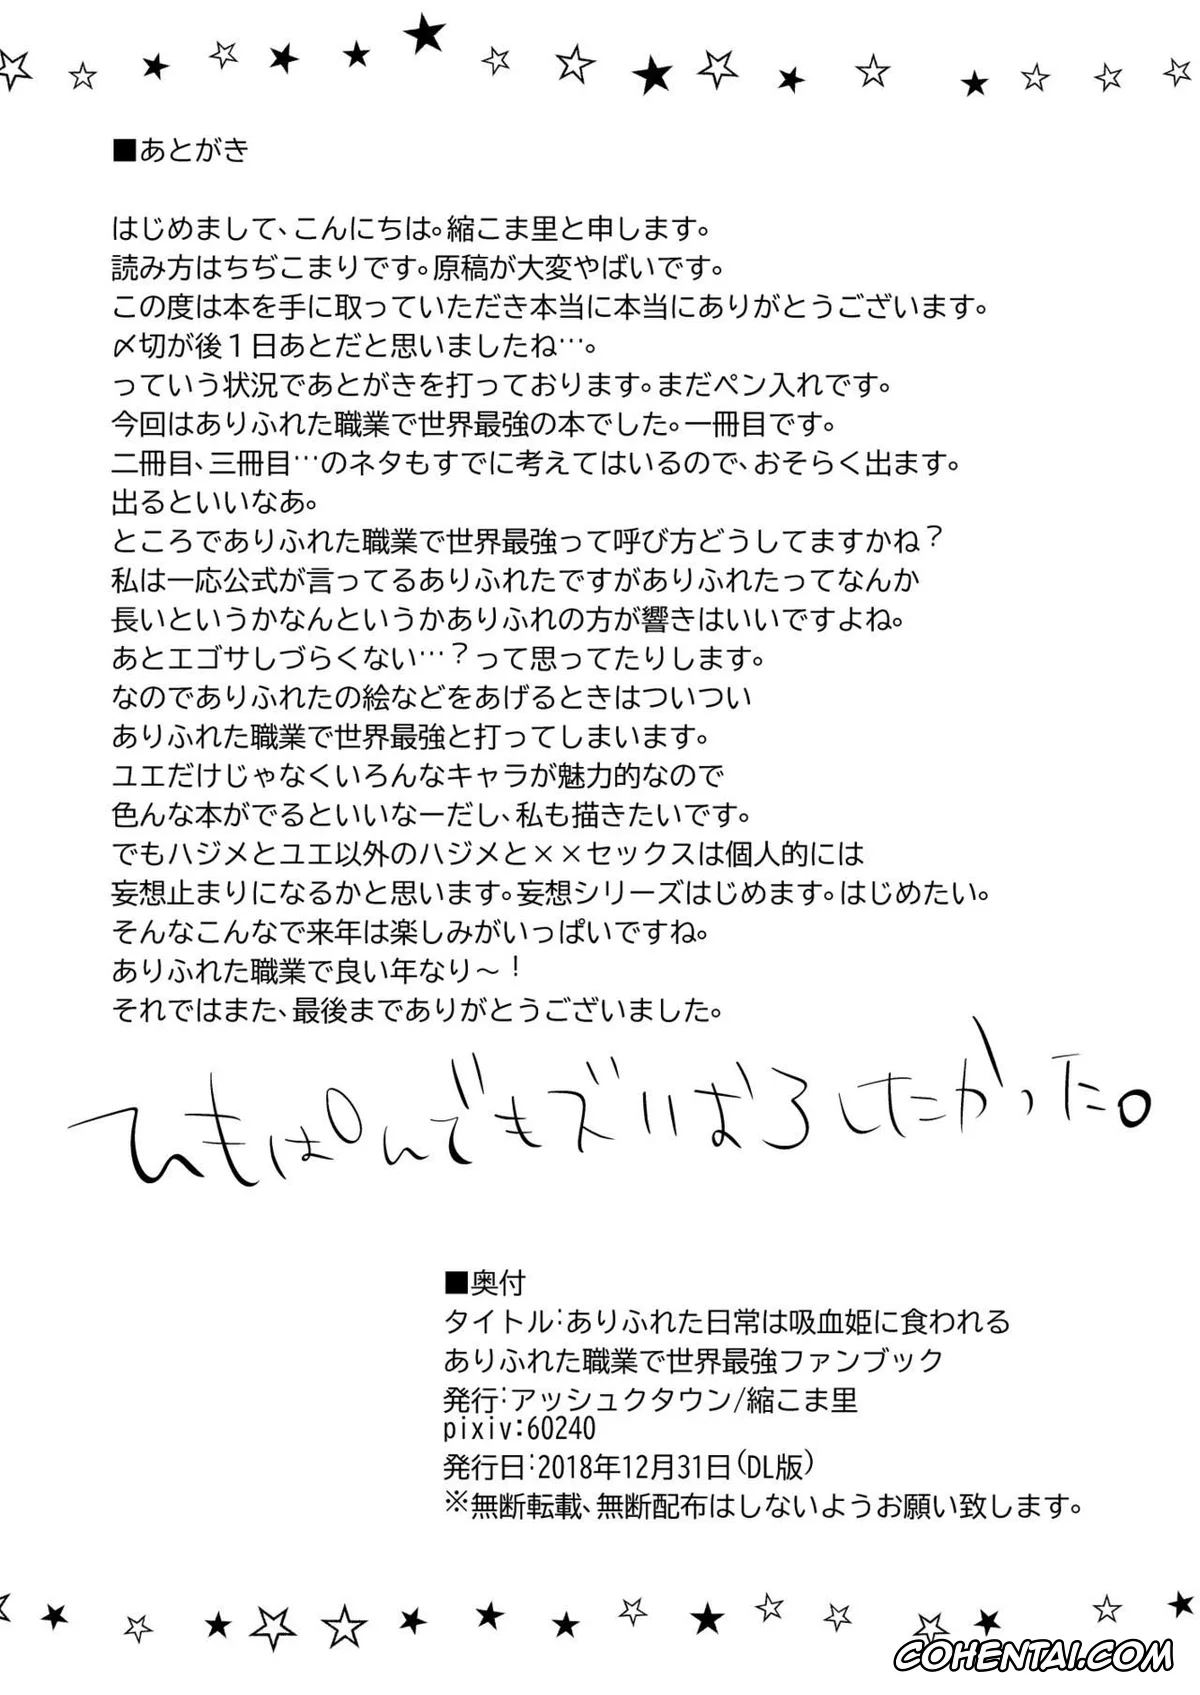 ■あとがき
はじめまして、こんにちは。縮こま里と申します。
読み方はちぢこまりです。原稿が大変やばいです。
この度は本を手に取っていただき本当に本当にありがとうございます。
〆切が後１日あとだと思いましたね…。
っていう状況であとがきを打っております。まだペン入れです。
今回はありふれた職業で世界最強の本でした。一冊目です。
二冊目、三冊目…のネタもすでに考えてはいるので、おそらく出ます。
出るといいなあ。
ところでありふれた職業で世界最強って呼び方どうしてますかね？
私は一応公式が言ってるありふれたですがありふれたってなんか
長いというかなんというかありふれの方が響きはいいですよね。
あとエゴサしづらくない…？って思ってたりします。
なのでありふれたの絵などをあげるときはついつい
ありふれた職業で世界最強と打ってしまいます。
ユエだけじゃなくいろんなキャラが魅力的なので
色んな本がでるといいなーだし、私も描きたいです。
でもハジメとユエ以外のハジメと××セックスは個人的には
妄想止まりになるかと思います。妄想シリーズはじめます。はじめたい。
そんなこんなで来年は楽しみがいっぱいですね。
ありふれた職業で良い年なり～！
それではまた、最後までありがとうございました。
ひもぱんでもズリおろしたかった。
■奥付
タイトル:ありふれた日常は吸血姫に食われる
ありふれた職業で世界最強ファンブック
発行:アッシュクタウン/縮こま里
pixiv:60240
発行日:2018年12月31日(DL版)
※無断転載、無断配布はしないようお願い致します。
COHENTAI.COM